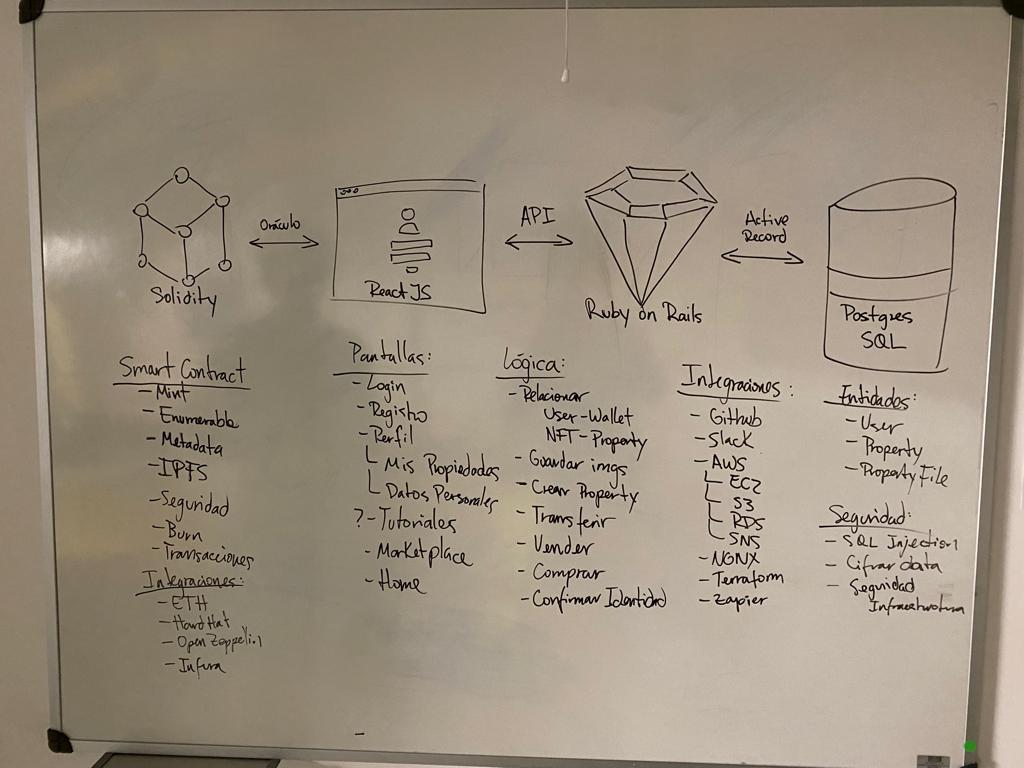 Oráculo
API
Active
Record
Solidity
React JS
Ruby on Rails
Postgres
SQL
Smart Contract
- Mint
- Enumerable
- Metadata
- IPFS
- Seguridad
- Burn
- Transacciones
Integraciones:
- ETH
- HardHat
- Open Zeppelin
- Infura
Pantallas:
- Login
- Registro
- Perfil
Mis Propiedades
Datos Personales
? - Tutoriales
- Marketplace
- Home
Lógica:
- Relacionar
User - Wallet
NFT - Property
- Guardar imgs
- Crear Property
- Transferir
- Vender
- Comprar
- Confirmar Identidad
Integraciones:
- Github
- Slack
- AWS
- EC2
- S3
- RDS
- SNS
- NGNX
- Terraform
- Zapier
Entidades:
- User
- Property
- Property File
Seguridad:
- SQL Injection
- Cifrar data
- Seguridad
Infraestructura